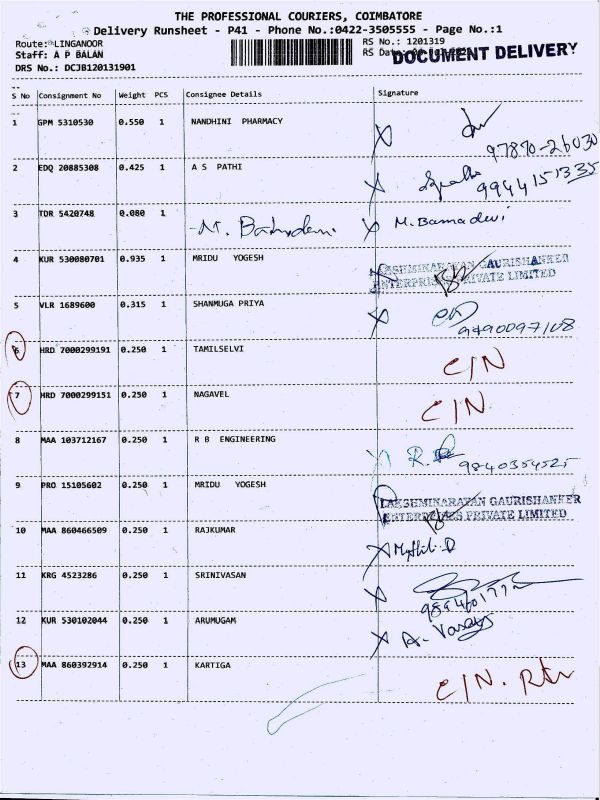 THE PROFESSIONAL COURIERS, COIMBATORE
Delivery Runsheet - P41 - Phone No.:0422-3505555 - Page No.:1
Route: LINGANOOR RS No.: 1201319
Staff: A P BALAN RS Date: DOCUMENT DELIVERY
DRS No.: DCJB120131901
S No Consignment No Weight PCS Consignee Details Signature
1 GPM 5310530 0.550 1 NANDHINI PHARMACY
97870-26030
2 EDQ 20885308 0.425 1 A S PATHI
9944151335
3 TDR 5420748 0.080 1 M. Bamadevi
4 KUR 530080701 0.935 1 MRIDU YOGESH LAKSHMINARAYAN GAURISHANKER
ENTERPRISES PRIVATE LIMITED
5 VLR 1689600 0.315 1 SHANMUGA PRIYA
9490097108
6 HRD 7000299191 0.250 1 TAMILSELVI C/N
7 HRD 7000299151 0.250 1 NAGAVEL C/N.
8 MAA 103712167 0.250 1 R B ENGINEERING
9840354525
9 PRO 15105602 0.250 1 MRIDU YOGESH LAKSHMINARAYAN GAURISHANKER
ENTERPRISES PRIVATE LIMITED
10 MAA 860466509 0.250 1 RAJKUMAR Mythili D
11 KRG 4523286 0.250 1 SRINIVASAN
12 KUR 530102044 0.250 1 ARUMUGAM
13 MAA 860392914 0.250 1 KARTIGA C/N.